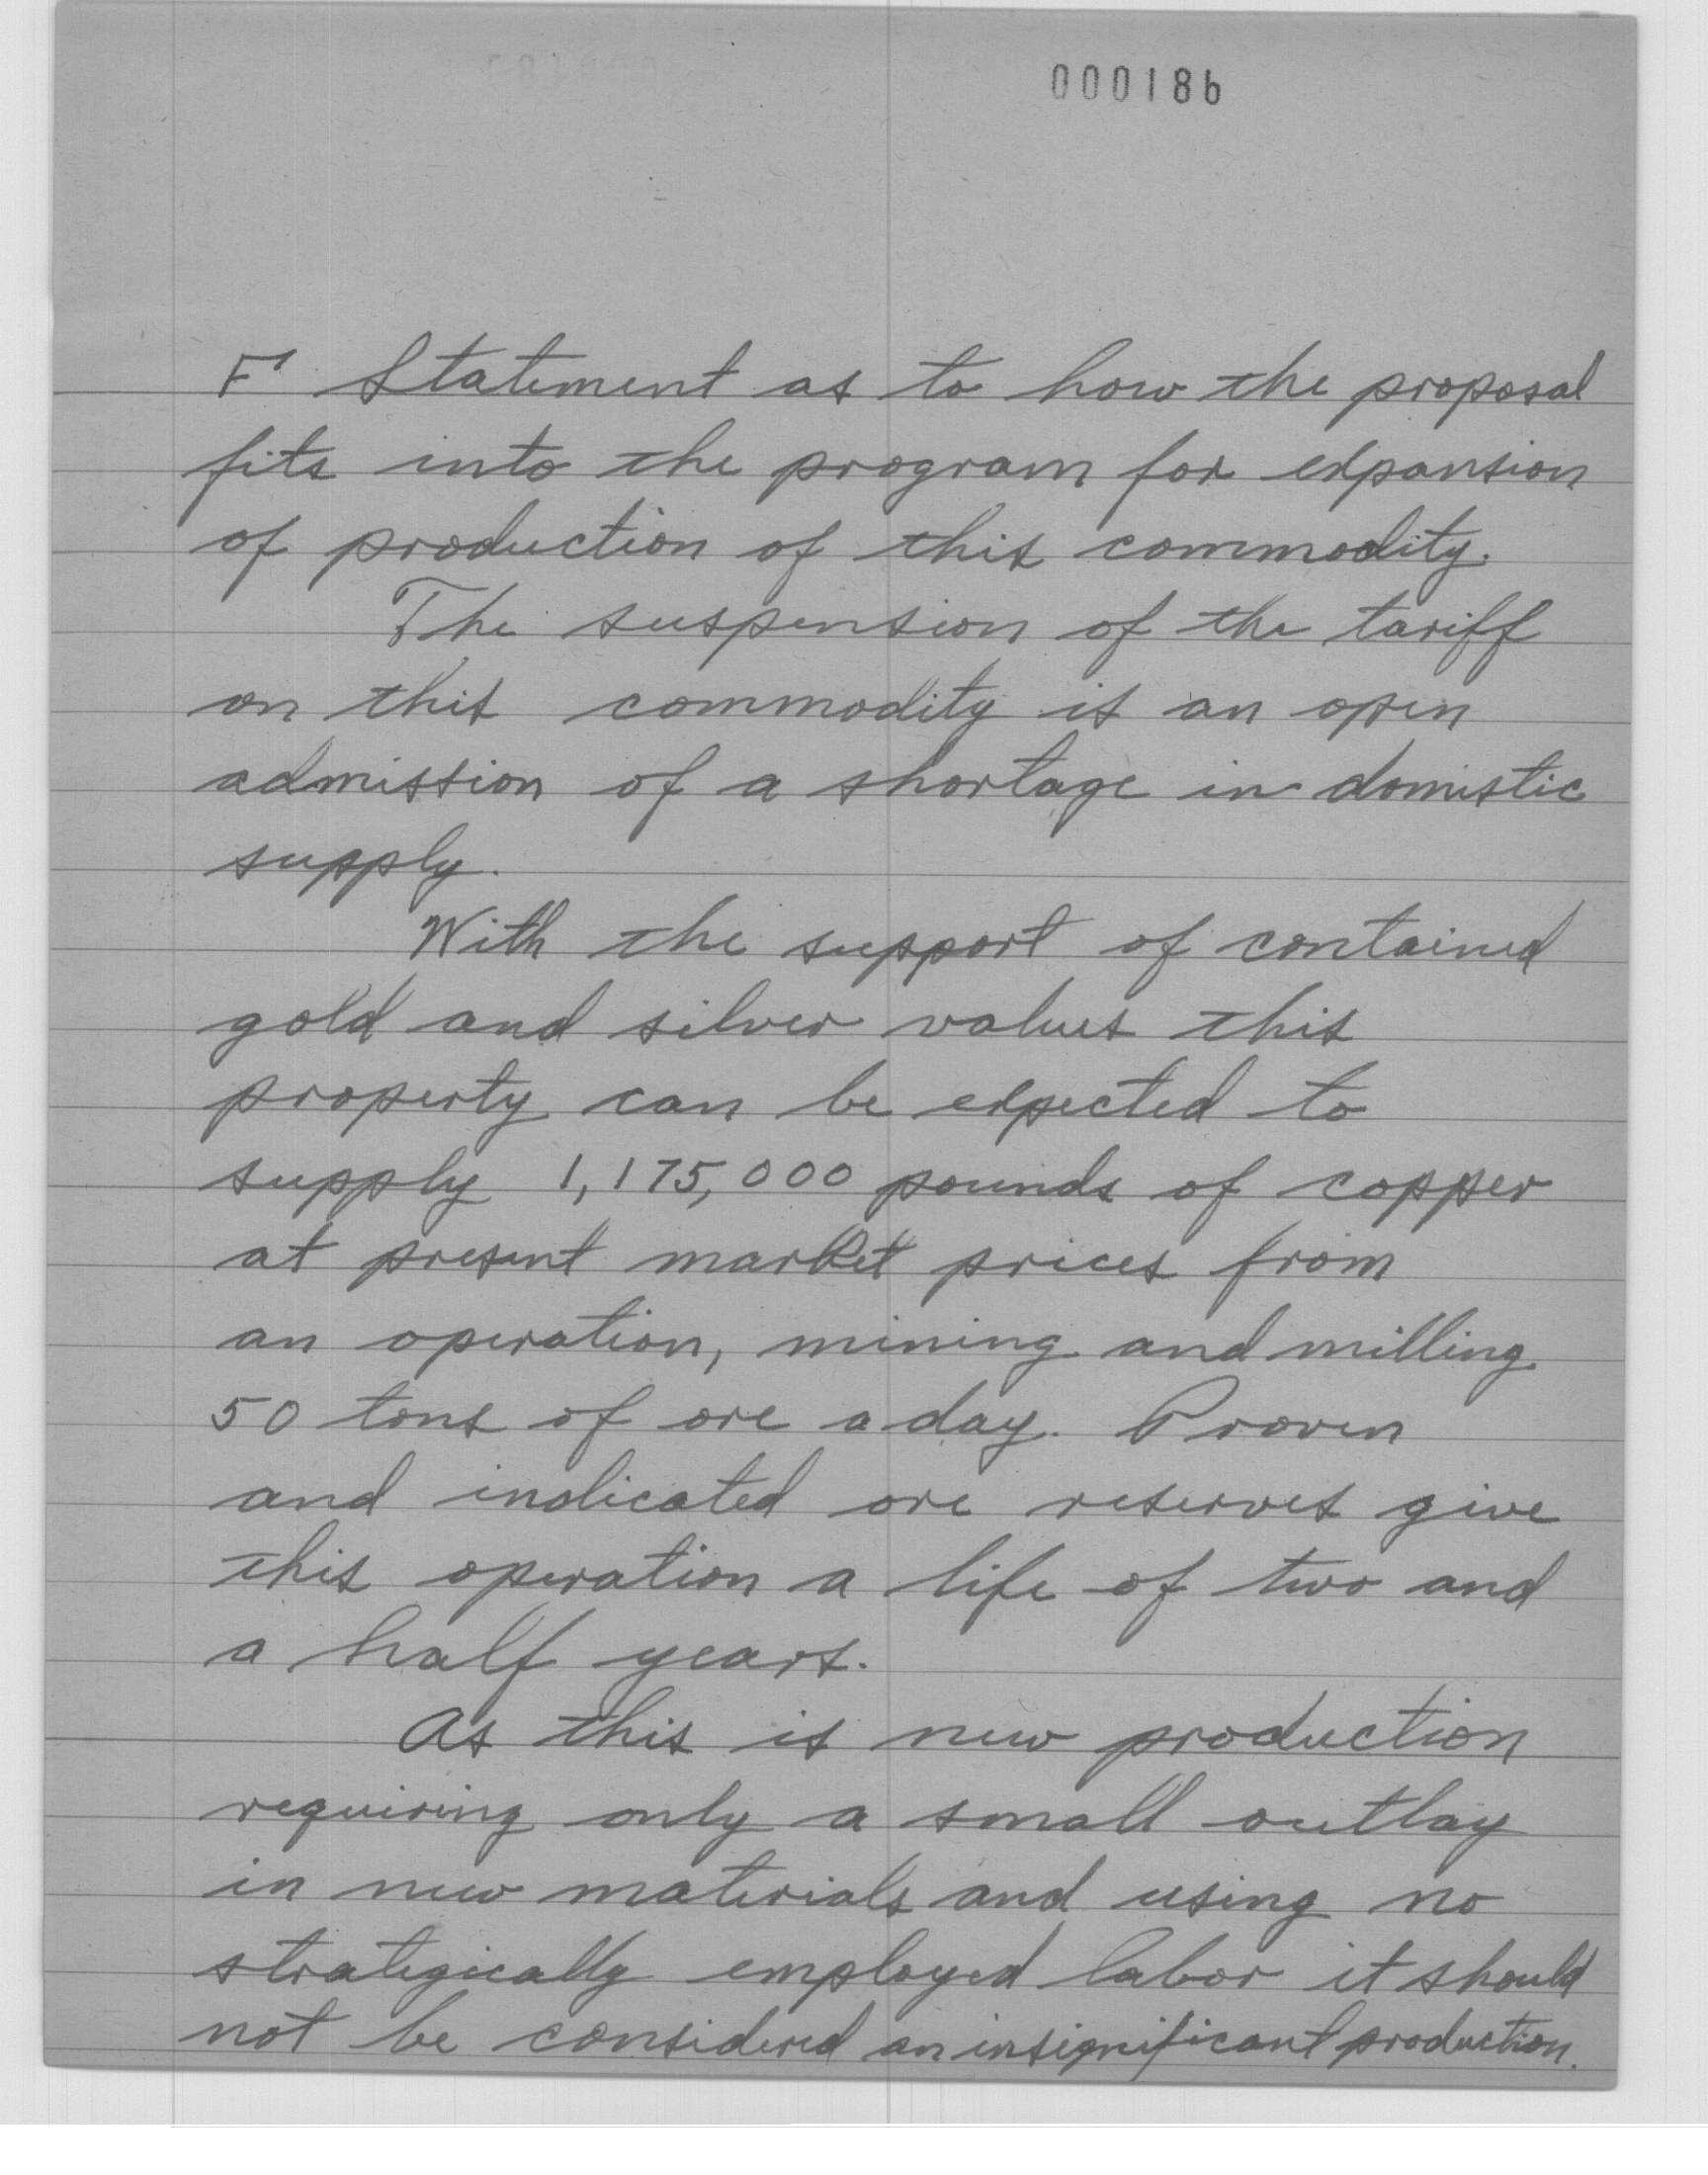 000186
F' Statement as to how the proposal
fits into the program for expansion
of production of this commodity.
The suspension of the tariff
on this commodity is an open
admission of a shortage in domestic
supply.
With the support of contained
gold and silver values this
property can be expected to
supply 1,175,000 pounds of copper
at present market prices from
an operation, mining and milling
50 tons of ore a day. Proven
and indicated ore reserves give
this operation a life of two and
a half years.
As this is new production
requiring only a small outlay
in new materials and using no
strategically employed labor it should
not be considered an insignificant production.